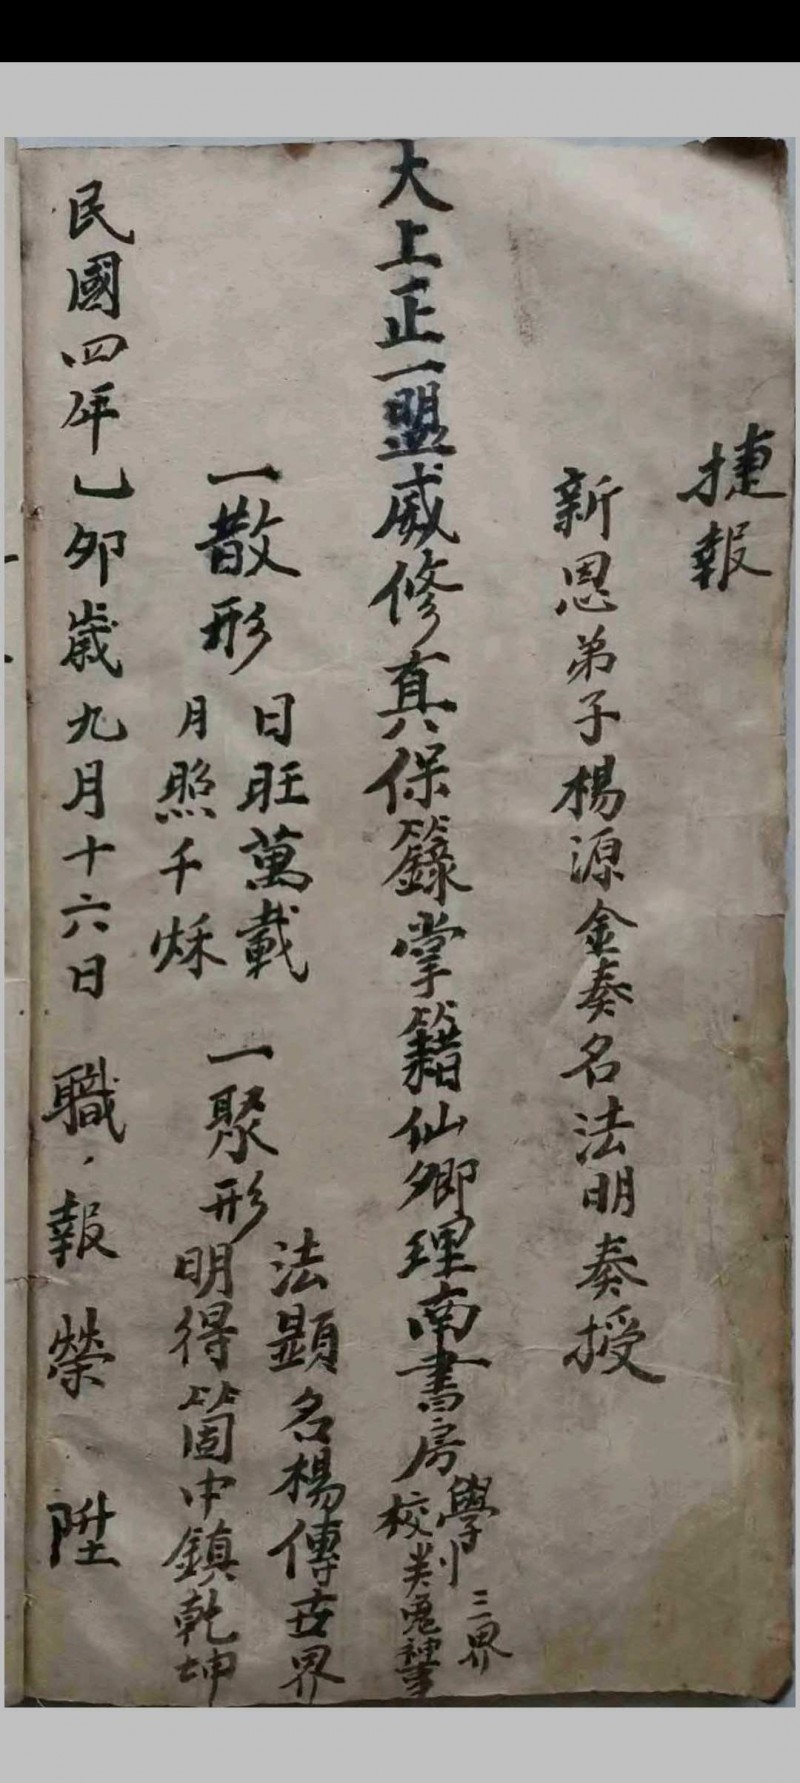 捷報
新恩弟子楊源金奏名法明奏授
大上正一盟威修真保籙掌籍仙卿理南書房
學判三界
校鬼神事
一散形
日旺萬載
月照千秌
一聚形
法顕名楊傳世界
明得箇中鎮乾坤
民國四年乙卯歲九月十六日 職、報榮陞